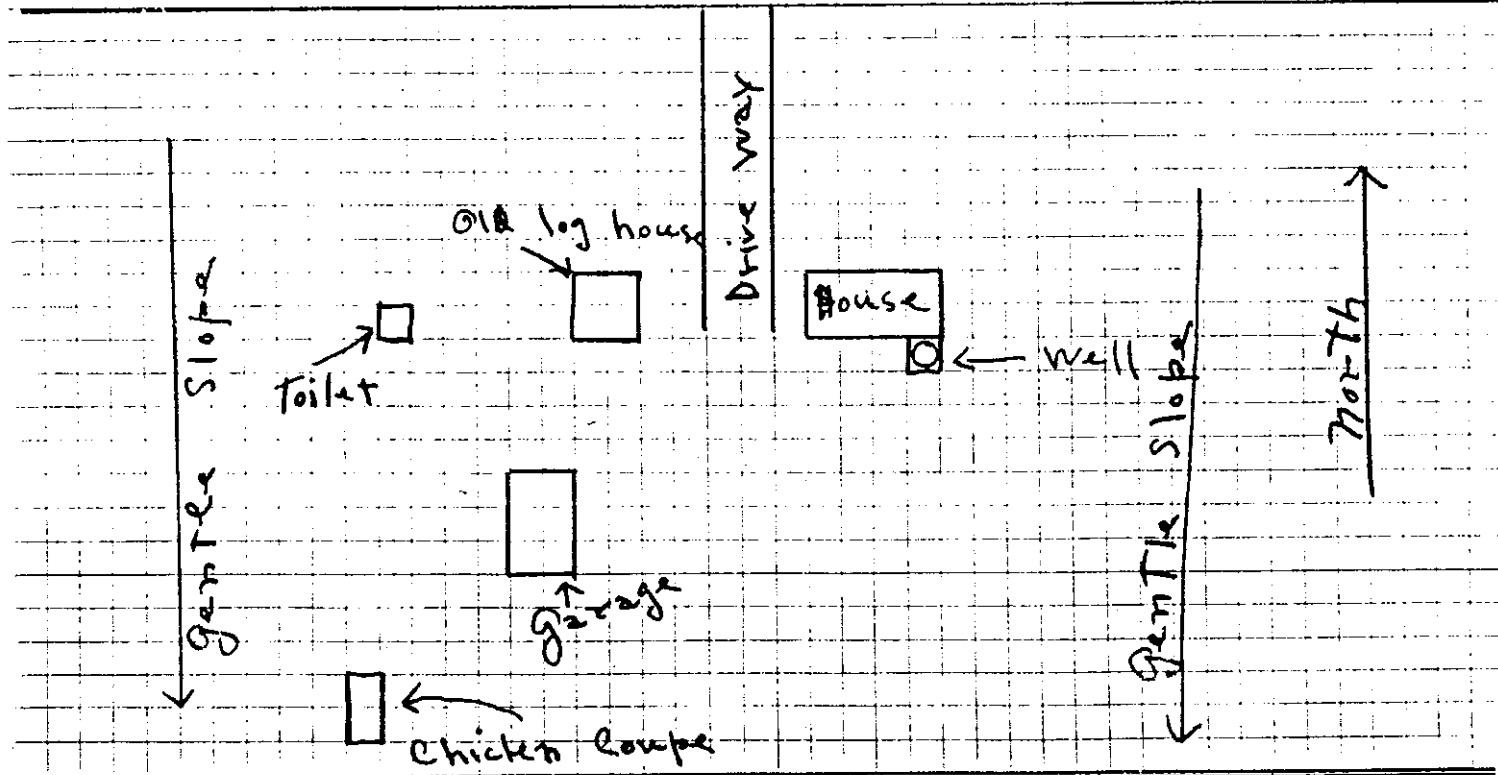 Drive way
Old log house
House
Well
Toilet
genTle Slope
genTle Slope
North
garage
Chicken Coupe